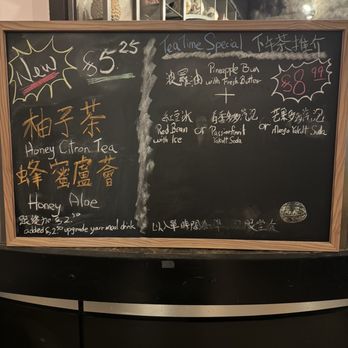 New
$5.25
柚子茶
Honey Citron Tea
蜂蜜蘆薈
Honey Aloe
added $2.50 upgrade your meal drink
Tea Time Special 下午茶推介
菠蘿油 Pineapple Bun
with Fresh Butter
$8.99
+
紅豆冰
Red Bean
with Ice
or
Passionfruit
Yakult Soda
or
芒果多多梳打
Mango Yakult Soda
以上單